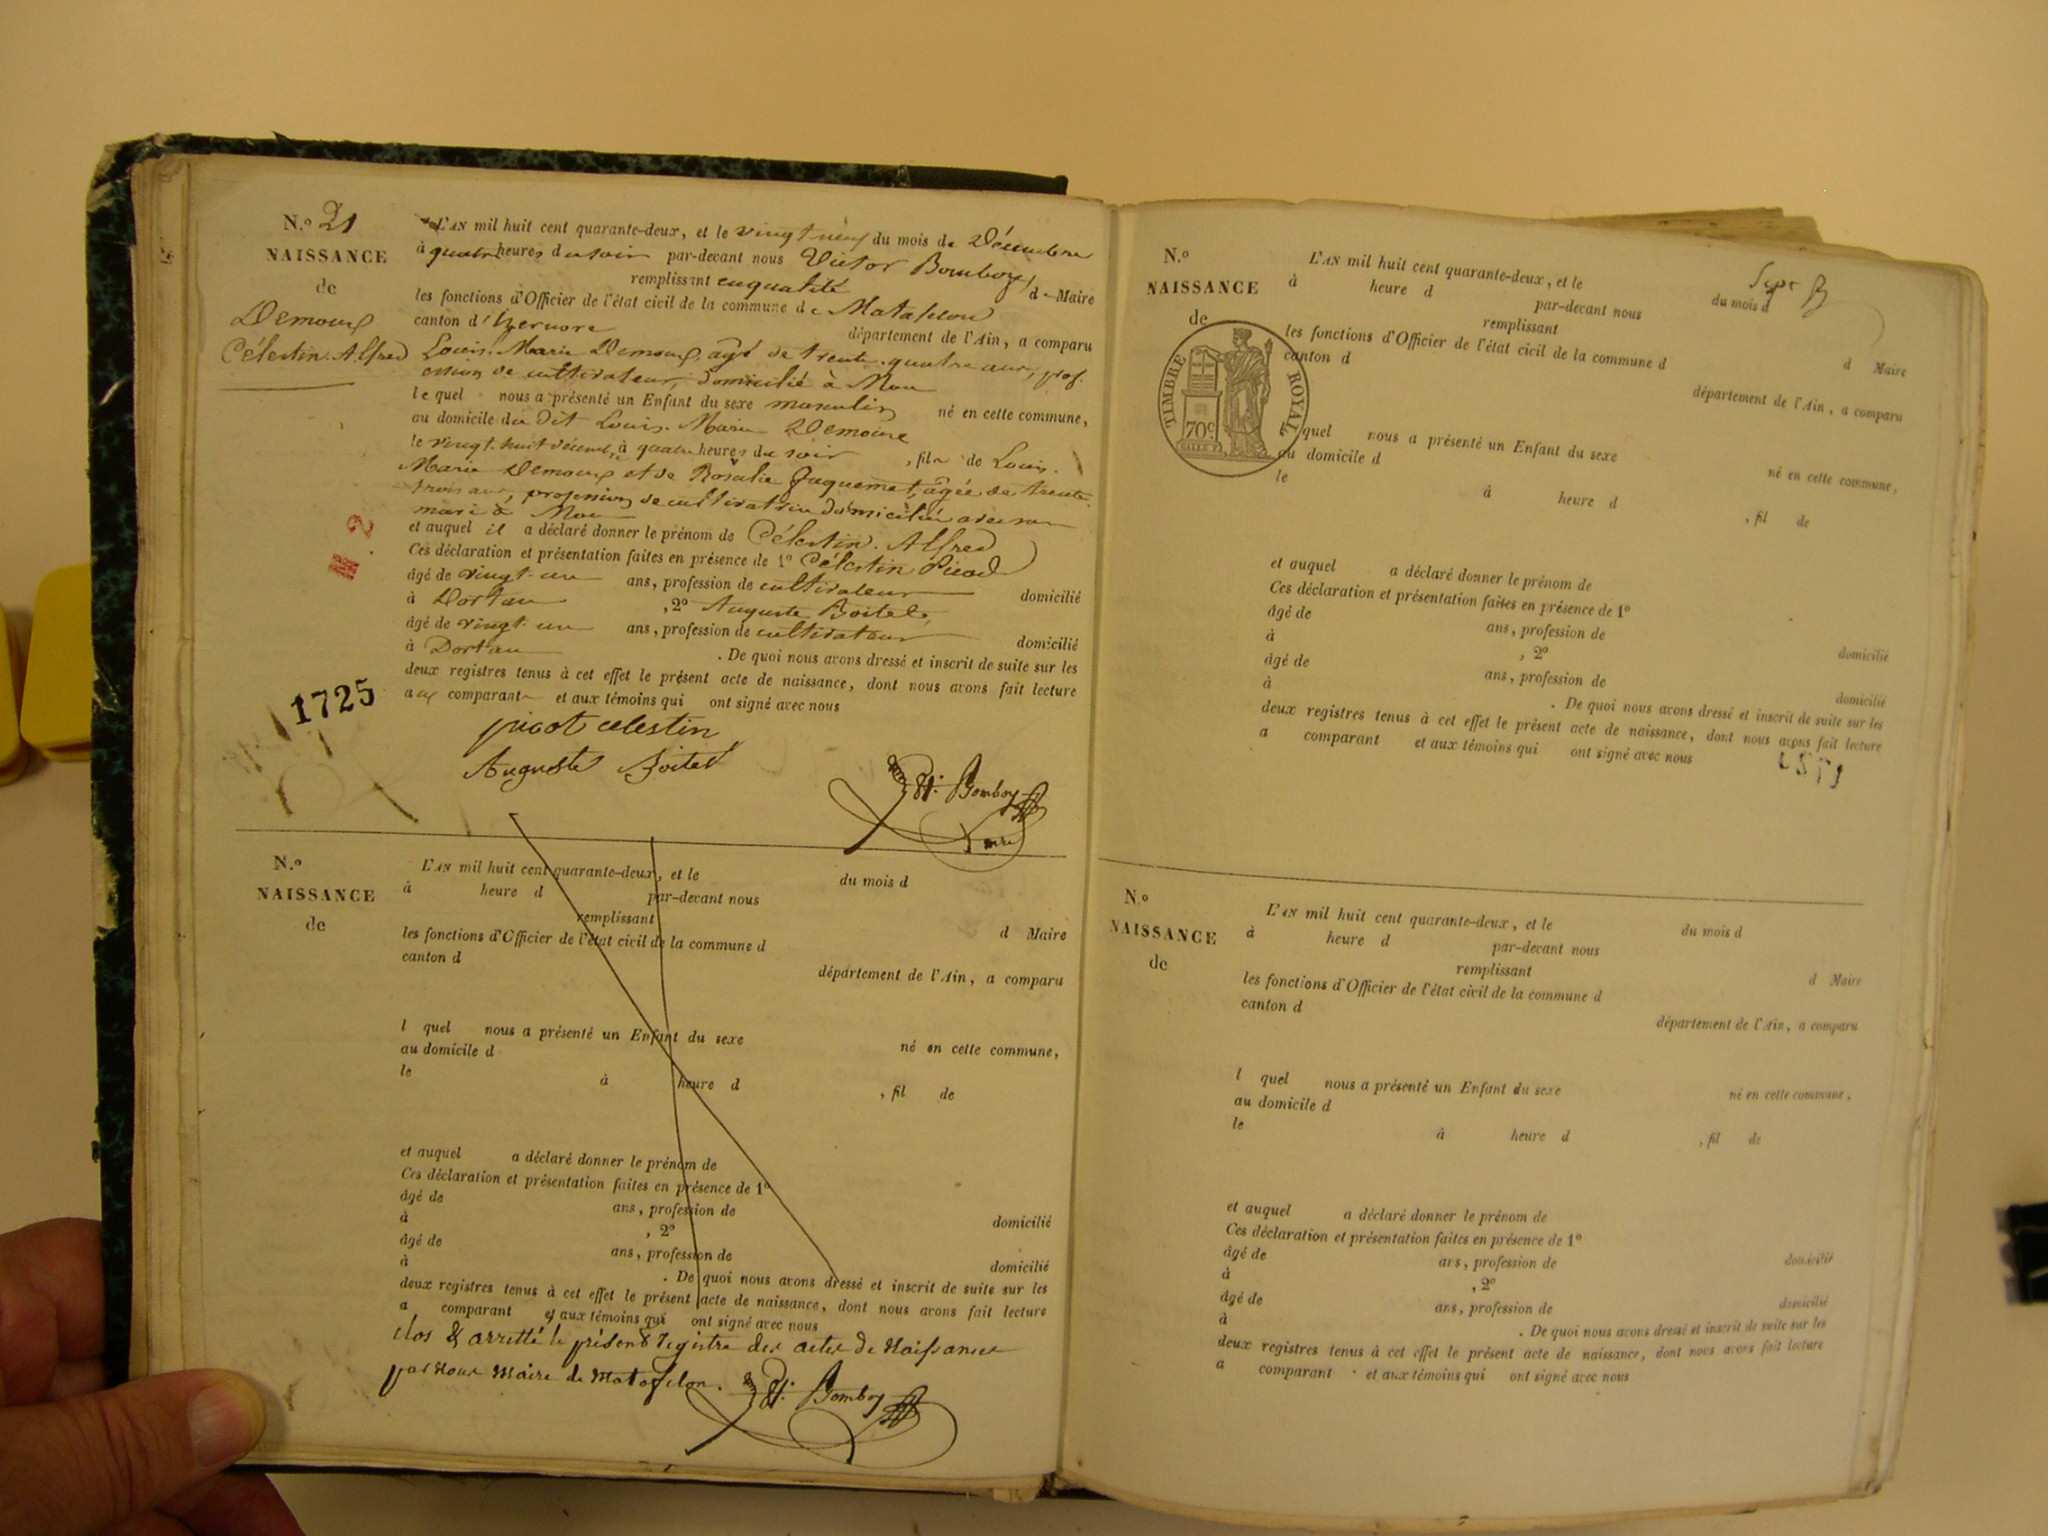 N.o 21
NAISSANCE
de
Demoux
Célestin Alfred
L'AN mil huit cent quarante-deux, et le vingt neuf du mois de Décembre
à quatre heures du soir par-devant nous Victor Bomboy,
remplissant en qualité de Maire
les fonctions d'Officier de l'état civil de la commune de Matafelon
canton d'Izernore département de l'Ain, a comparu
Louis-Marie Demoux, âgé de trente-quatre ans, prof-
ession de cultivateur, domicilié à Mon
le quel nous a présenté un Enfant du sexe masculin né en cette commune,
au domicile du dit Louis-Marie Demoux
le vingt-huit décembre, à quatre heures du soir, fils de Louis-
Marie Demoux et de Rosalie Jaquemet, âgée de trente
trois ans, profession de cultivatrice domiciliée avec son
mari à Mon
et auquel il a déclaré donner le prénom de Célestin-Alfred
Ces déclaration et présentation faites en présence de 1o Célestin Picod
âgé de vingt-un ans, profession de cultivateur domicilié
à Dortan, 2o Auguste Boitel,
âgé de vingt-un ans, profession de cultivateur domicilié
à Dortan. De quoi nous avons dressé et inscrit de suite sur les
deux registres tenus à cet effet le présent acte de naissance, dont nous avons fait lecture
aux comparants et aux témoins qui ont signé avec nous
1725
picot celestin
Auguste Boitel
Vt. Bomboy
maire
N.o
NAISSANCE
de
L'AN mil huit cent quarante-deux, et le du mois d
à heure d par-devant nous
remplissant d Maire
les fonctions d'Officier de l'état civil de la commune d
canton d département de l'Ain, a comparu
l quel nous a présenté un Enfant du sexe né en cette commune,
au domicile d
le à heure d , fil de
et auquel a déclaré donner le prénom de
Ces déclaration et présentation faites en présence de 1o
âgé de ans, profession de domicilié
à , 2o
âgé de ans, profession de domicilié
à . De quoi nous avons dressé et inscrit de suite sur les
deux registres tenus à cet effet le présent acte de naissance, dont nous avons fait lecture
a comparant et aux témoins qui ont signé avec nous
clos & arretté le présent Registre des actes de Naissances
par Nous Maire de Matafelon.
Vt. Bomboy
N.o
NAISSANCE
de
TIMBRE ROYAL
70c
L'AN mil huit cent quarante-deux, et le du mois d
à heure d par-devant nous
remplissant d Maire
les fonctions d'Officier de l'état civil de la commune d
canton d département de l'Ain, a comparu
quel nous a présenté un Enfant du sexe né en cette commune,
au domicile d
le à heure d , fil de
et auquel a déclaré donner le prénom de
Ces déclaration et présentation faites en présence de 1o
âgé de ans, profession de domicilié
à , 2o
âgé de ans, profession de domicilié
à . De quoi nous avons dressé et inscrit de suite sur les
deux registres tenus à cet effet le présent acte de naissance, dont nous avons fait lecture
a comparant et aux témoins qui ont signé avec nous
N.o
NAISSANCE
de
L'AN mil huit cent quarante-deux, et le du mois d
à heure d par-devant nous
remplissant d Maire
les fonctions d'Officier de l'état civil de la commune d
canton d département de l'Ain, a comparu
l quel nous a présenté un Enfant du sexe né en cette commune,
au domicile d
le à heure d , fil de
et auquel a déclaré donner le prénom de
Ces déclaration et présentation faites en présence de 1o
âgé de ans, profession de domicilié
à , 2o
âgé de ans, profession de domicilié
à . De quoi nous avons dressé et inscrit de suite sur les
deux registres tenus à cet effet le présent acte de naissance, dont nous avons fait lecture
a comparant et aux témoins qui ont signé avec nous